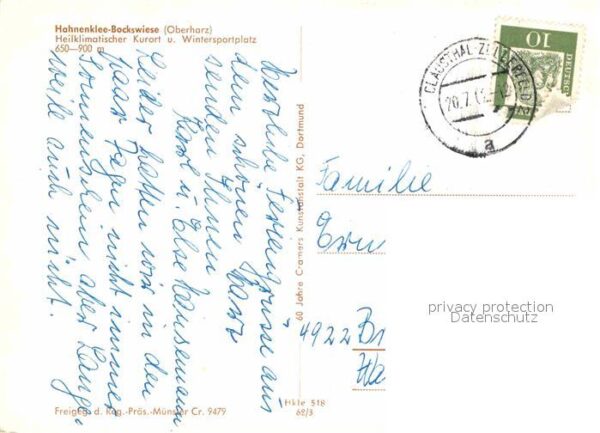 Hahnenklee-Bockswiese (Oberharz)
Heilklimatischer Kurort u. Wintersportplatz
650—900 m
Herzliche Feriengrüsse aus
dem schönen Harz
senden Ihnen
Karl u. Else Hansemann
Leider hatten wir in den
paar Tagen nicht immer
Sonnenschein aber Lange-
weile auch nicht.
Freigeg. d. Reg.-Präs.-Münster Cr. 9479
60 Jahre Cramers Kunstanstalt KG, Dortmund
Hkle 518
62/3
10
DEUTSC
CLAUSTHAL-ZELLERFELD
20.7.6
a
Familie
Erw
4922 Br
Wa
privacy protection
Datenschutz